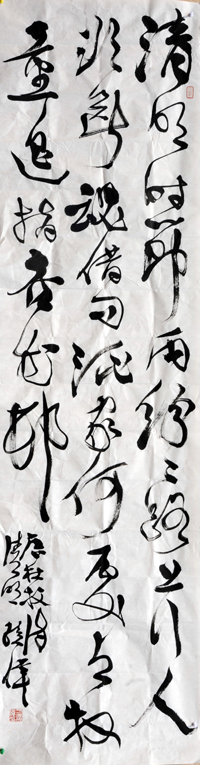 清明时节雨纷纷路上行人
欲断魂借问酒家何处有牧
童遥指杏花村
唐杜牧诗
清明